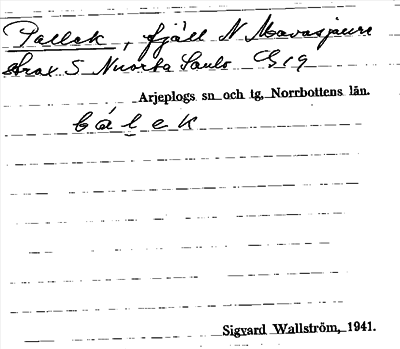 Pallek, fjäll N Mavasjaure
strax S Nuorta Saulo G 19
Arjeplogs sn och tg, Norrbottens län.
bálek
Sigvard Wallström, 1941.